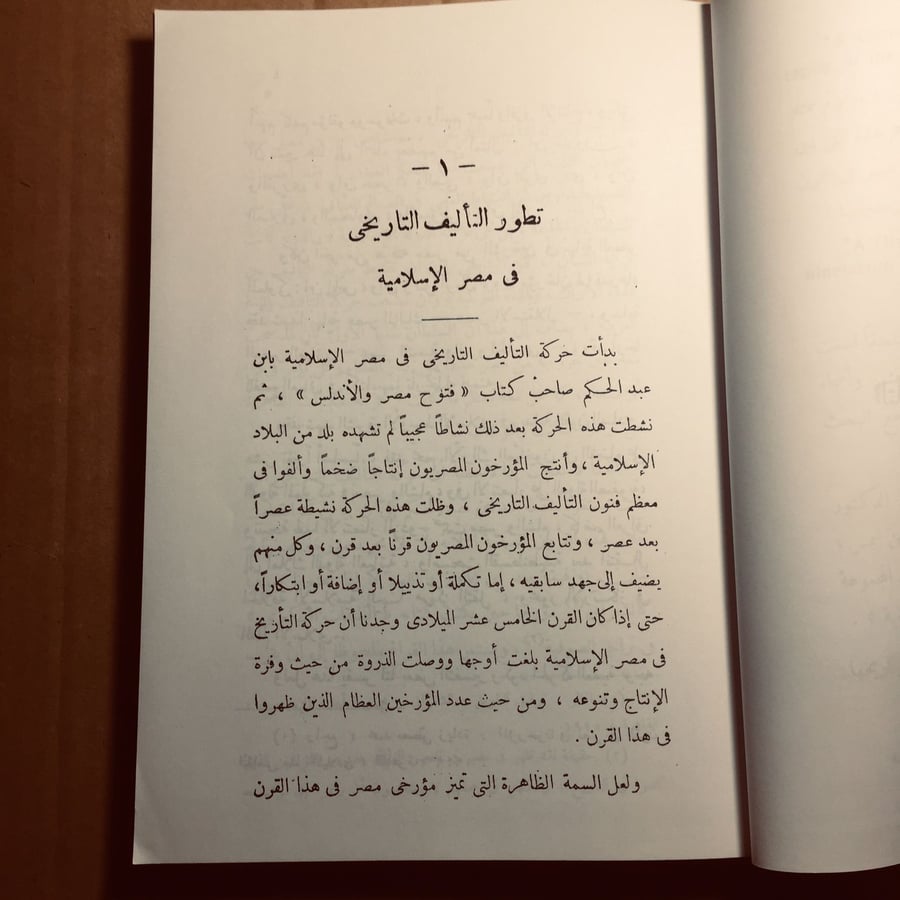 - ١ -
تطور التأليف التاريخى
فى مصر الإسلامية
بدأت حركة التأليف التاريخى فى مصر الإسلامية بابن
عبد الحكم صاحب كتاب « فتوح مصر والأندلس » ، ثم
نشطت هذه الحركة بعد ذلك نشاطاً عجيباً لم تشهده بلد من البلاد
الإسلامية ، وأنتج المؤرخون المصريون إنتاجاً ضخماً وألفوا فى
معظم فنون التأليف التاريخى ، وظلت هذه الحركة نشيطة عصراً
بعد عصر ، وتتابع المؤرخون المصريون قرناً بعد قرن ، وكل منهم
يضيف إلى جهد سابقيه ، إما تكملة أو تذييلا أو إضافة أو ابتكاراً،
حتى إذا كان القرن الخامس عشر الميلادى وجدنا أن حركة التأريخ
فى مصر الإسلامية بلغت أوجها ووصلت الذروة من حيث وفرة
الإنتاج وتنوعه ، ومن حيث عدد المؤرخين العظام الذين ظهروا
فى هذا القرن .
ولعل السمة الظاهرة التى تميز مؤرخى مصر فى هذا القرن